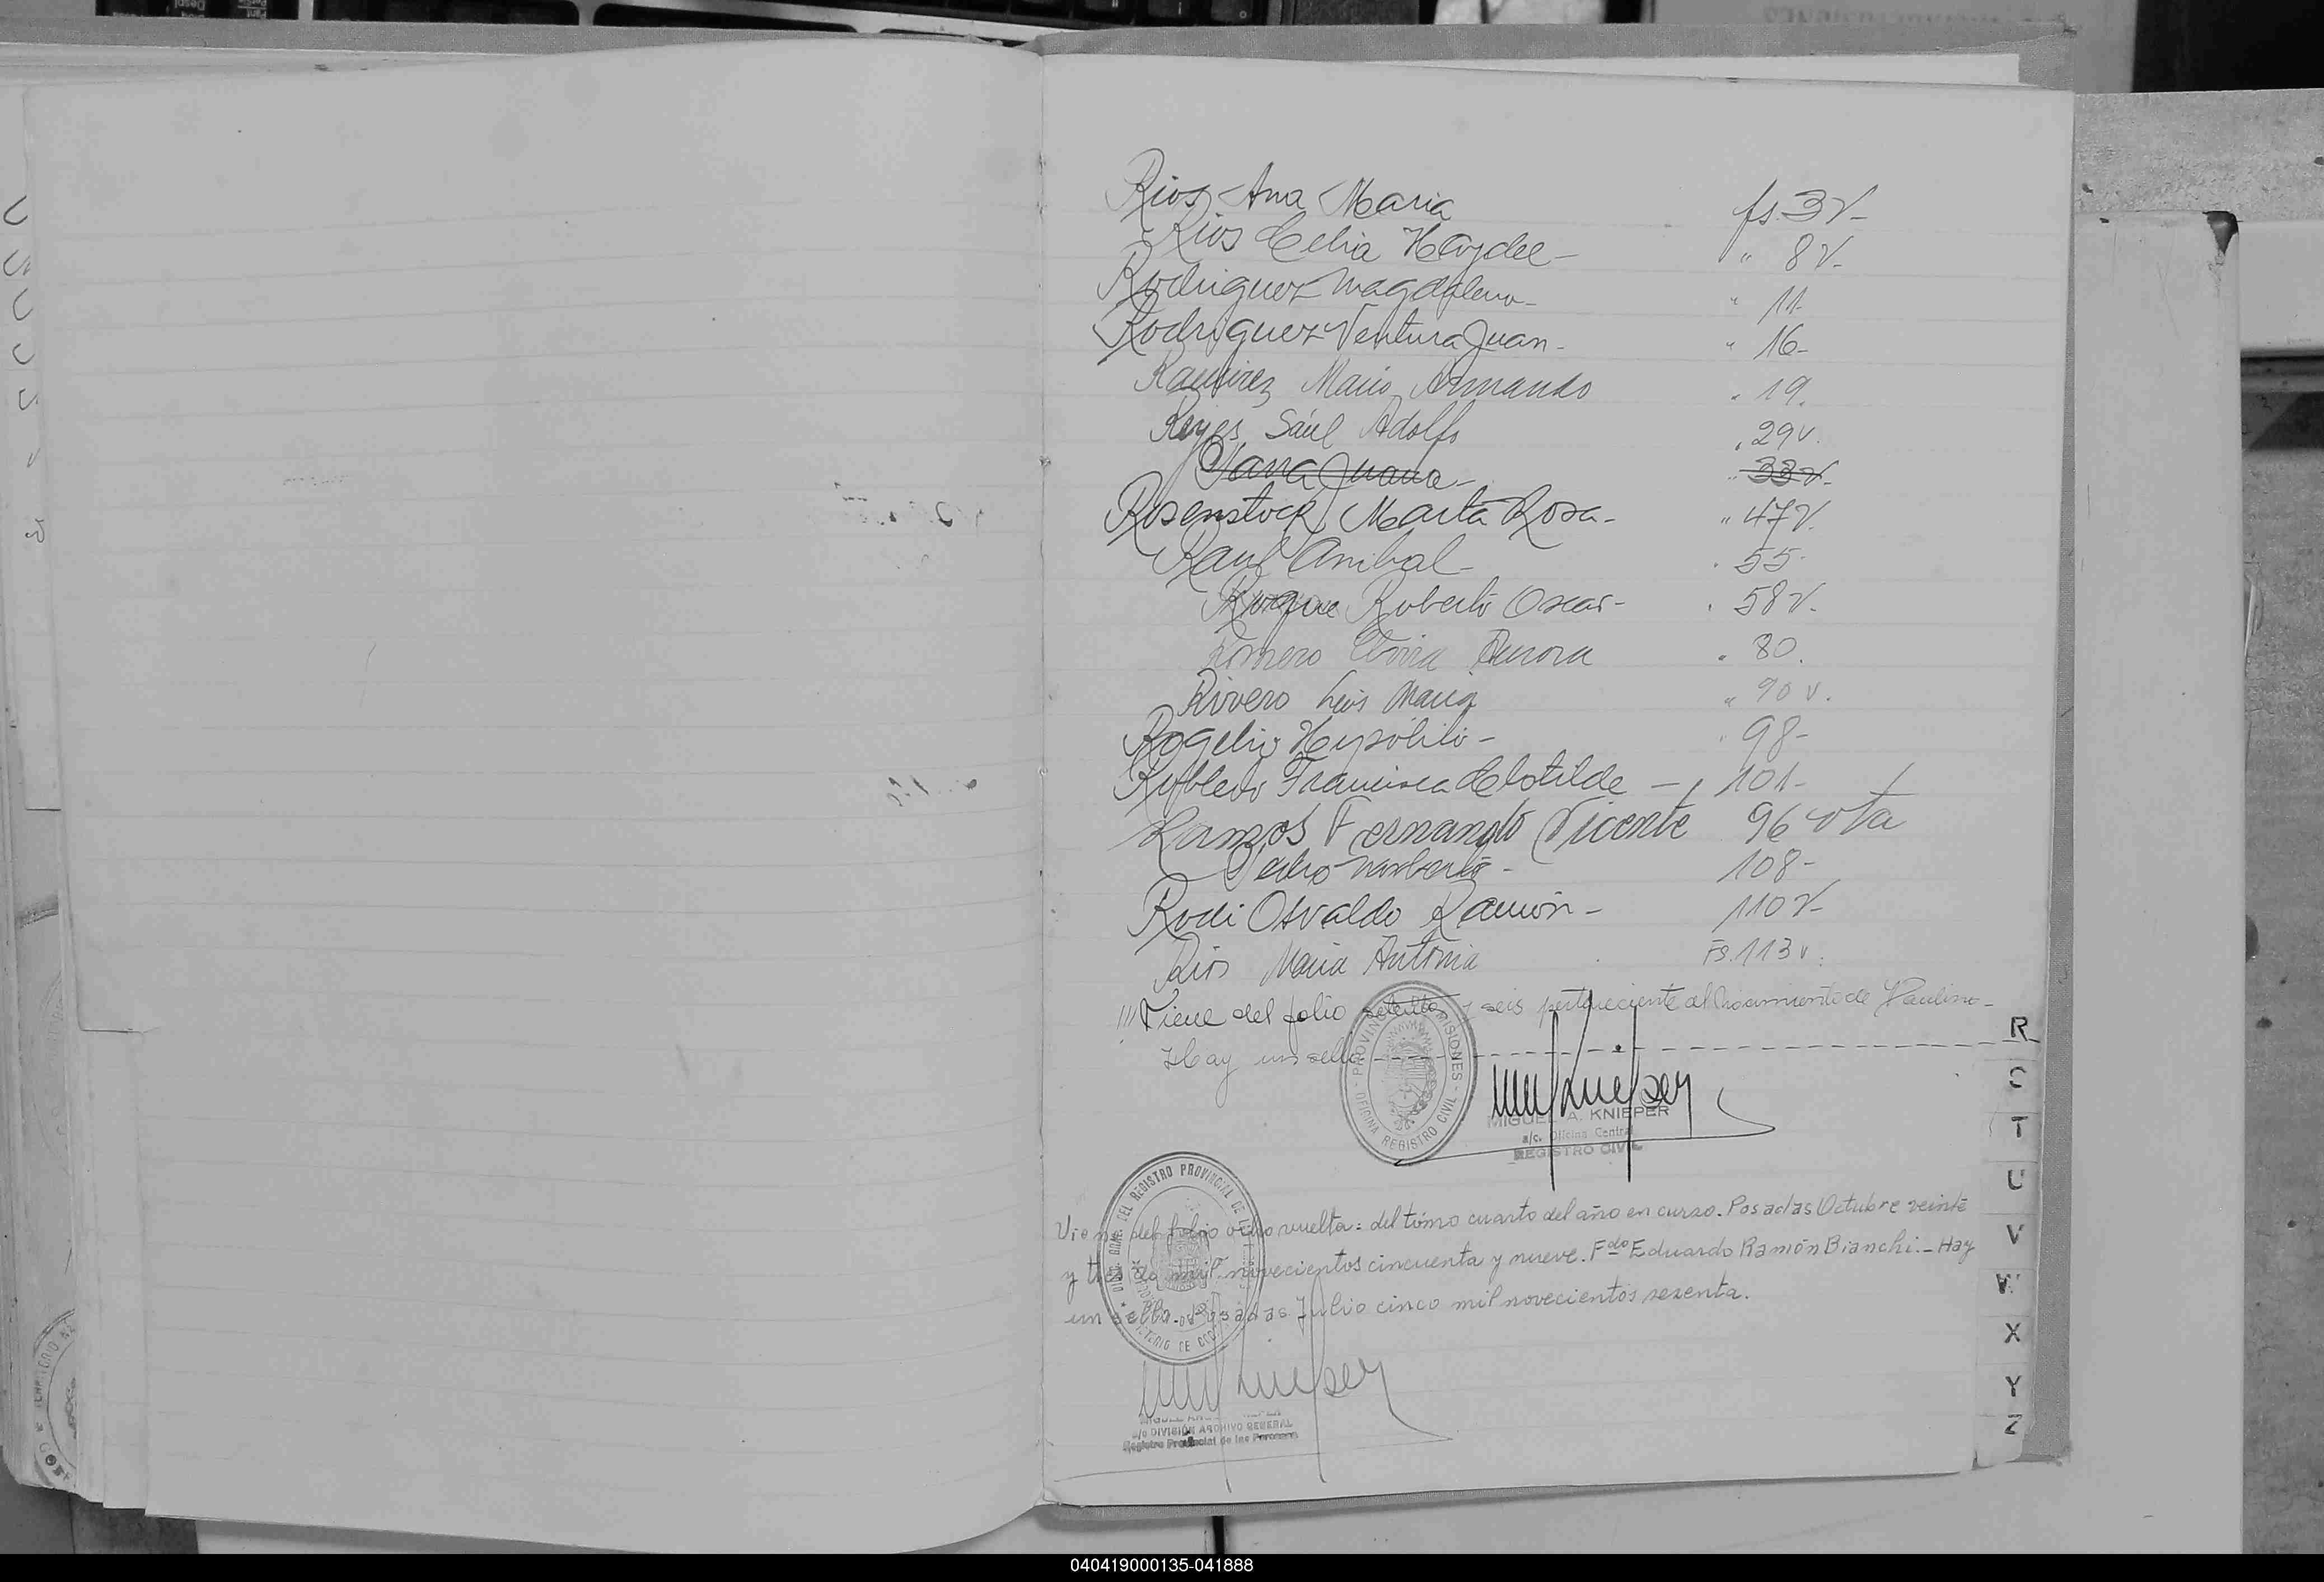 Rios Ana Maria fs. 3v-
Rios Celia Haydee- " 8v-
Rodriguez Magdalena- " 11-
Rodriguez Ventura Juan- " 16-
Ramirez Mario Armando " 19.
Reyes Saúl Adolfo " 29v.
Juana- " 33v-
Rosenstock Marta Rosa- " 47v.
Raul Anibal- " 55-
Roque Roberto Oscar- " 58v.
Romero Aurora " 80.
Rivero Luis Maria " 90 v.
Rogelio Hypólito- " 98-
Robledo Francisca Clotilde - " 101-
Ramos Fernando Vicente 96 vta
Pedro Norberto- 108-
Rodi Osvaldo Ramón- 110v-
Rios Maria Antonia Fs. 113v.
///Viene del folio setenta y seis perteneciente al Nacimiento de Paulino-
Hay un sello
PROVINCIA MISIONES - OFICINA REGISTRO CIVIL -
MIGUEL A. KNIEPER
a/c. Oficina Central
REGISTRO CIVIL
Viene del folio ocho vuelta: del tómo cuarto del año en curso. Posadas Octubre veinte
y tres de mil novecientos cincuenta y nueve. Fdo Eduardo Ramón Bianchi.- Hay
un sello. Posadas Julio cinco mil novecientos sesenta.
DEL REGISTRO PROVINCIAL DE
a/c DIVISIÓN ARCHIVO GENERAL
Registro Provincial de las Personas
R
S
T
U
V
W
X
Y
Z
040419000135-041888